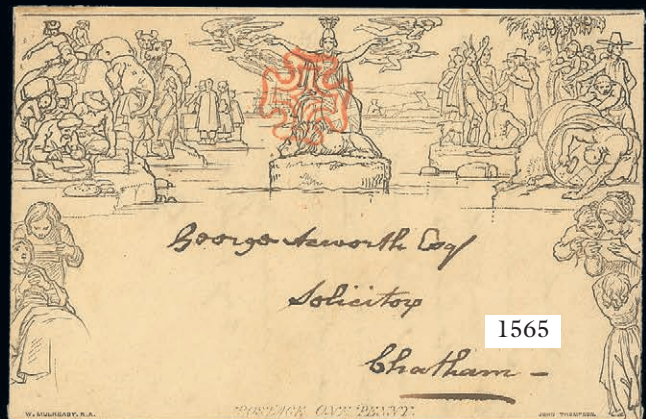 George Acworth Esqr
Solicitor
1565
Chatham -
W. MULREADY, R.A.
POSTAGE ONE PENNY.
JOHN THOMPSON.